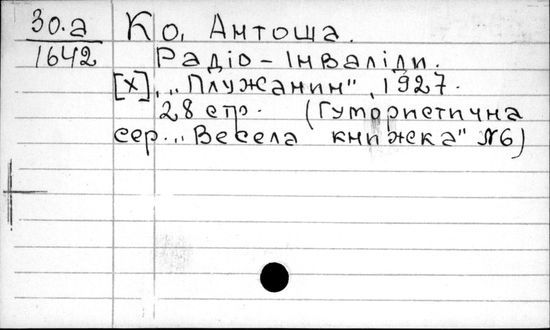 30.а Ко, Антоша.
1642 Радіо-Інваліди.
[Х], „Плужанин", 1927.
28 стр. (Гумористична
сер. „Весела книжска" №6)